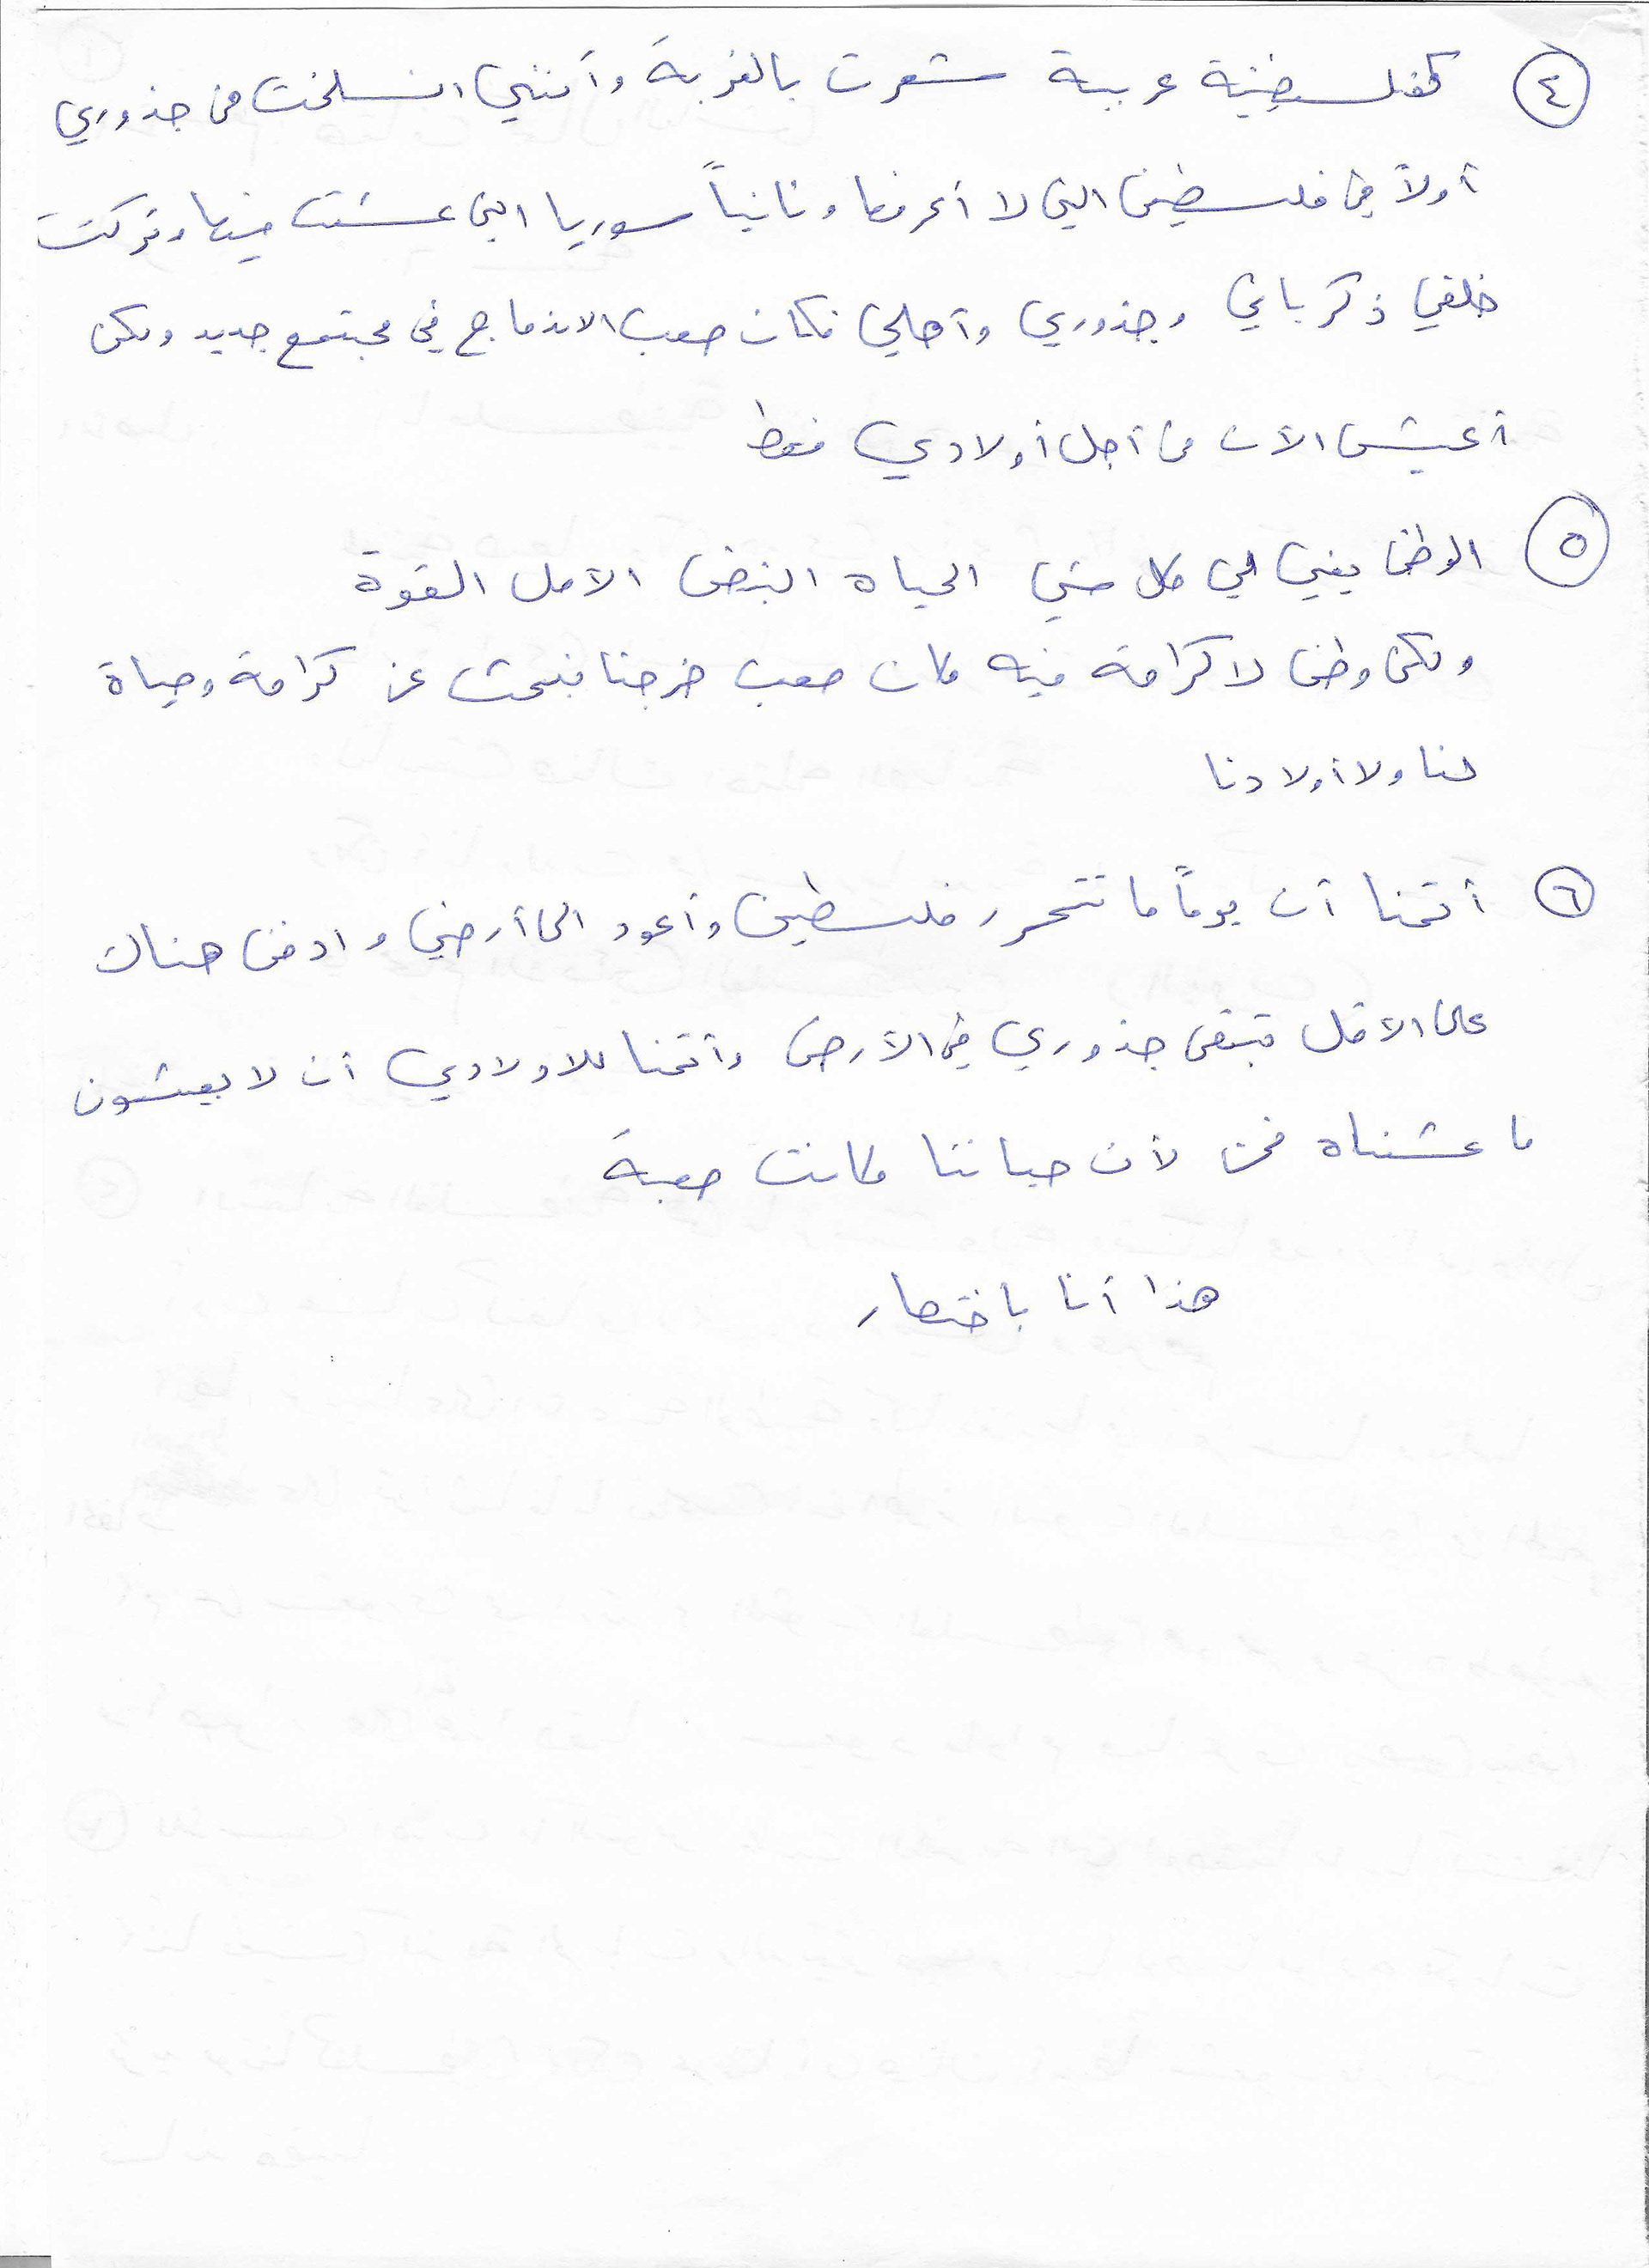 ٤ كفلسطينية عربية شعرت بالغربة وأنني انسلخت من جذوري
أولاً في فلسطين التي لا أعرفها وثانياً سوريا التي عشت فيها وتركت
خلفي ذكرياتي وجذوري وأهلي فكان صعب الاندماج في مجتمع جديد ولكن
أعيش الآن من أجل أولادي فقط
٥ الوطن يعني لي كل شي الحياه النبض الأمل القوة
ولكن وطن لا كرامة فيه كان صعب خرجنا نبحث عن كرامة وحياة
لنا ولأولادنا
٦ أتمنا أن يوماً ما تتحرر فلسطين وأعود الى أرضي وادفن هناك
على الأقل تبقى جذوري في الأرض وأتمنا للاولادي أن لا يعيشون
ما عشناه نحن لأن حياتنا كانت صعبة
هذا أنا باختصار